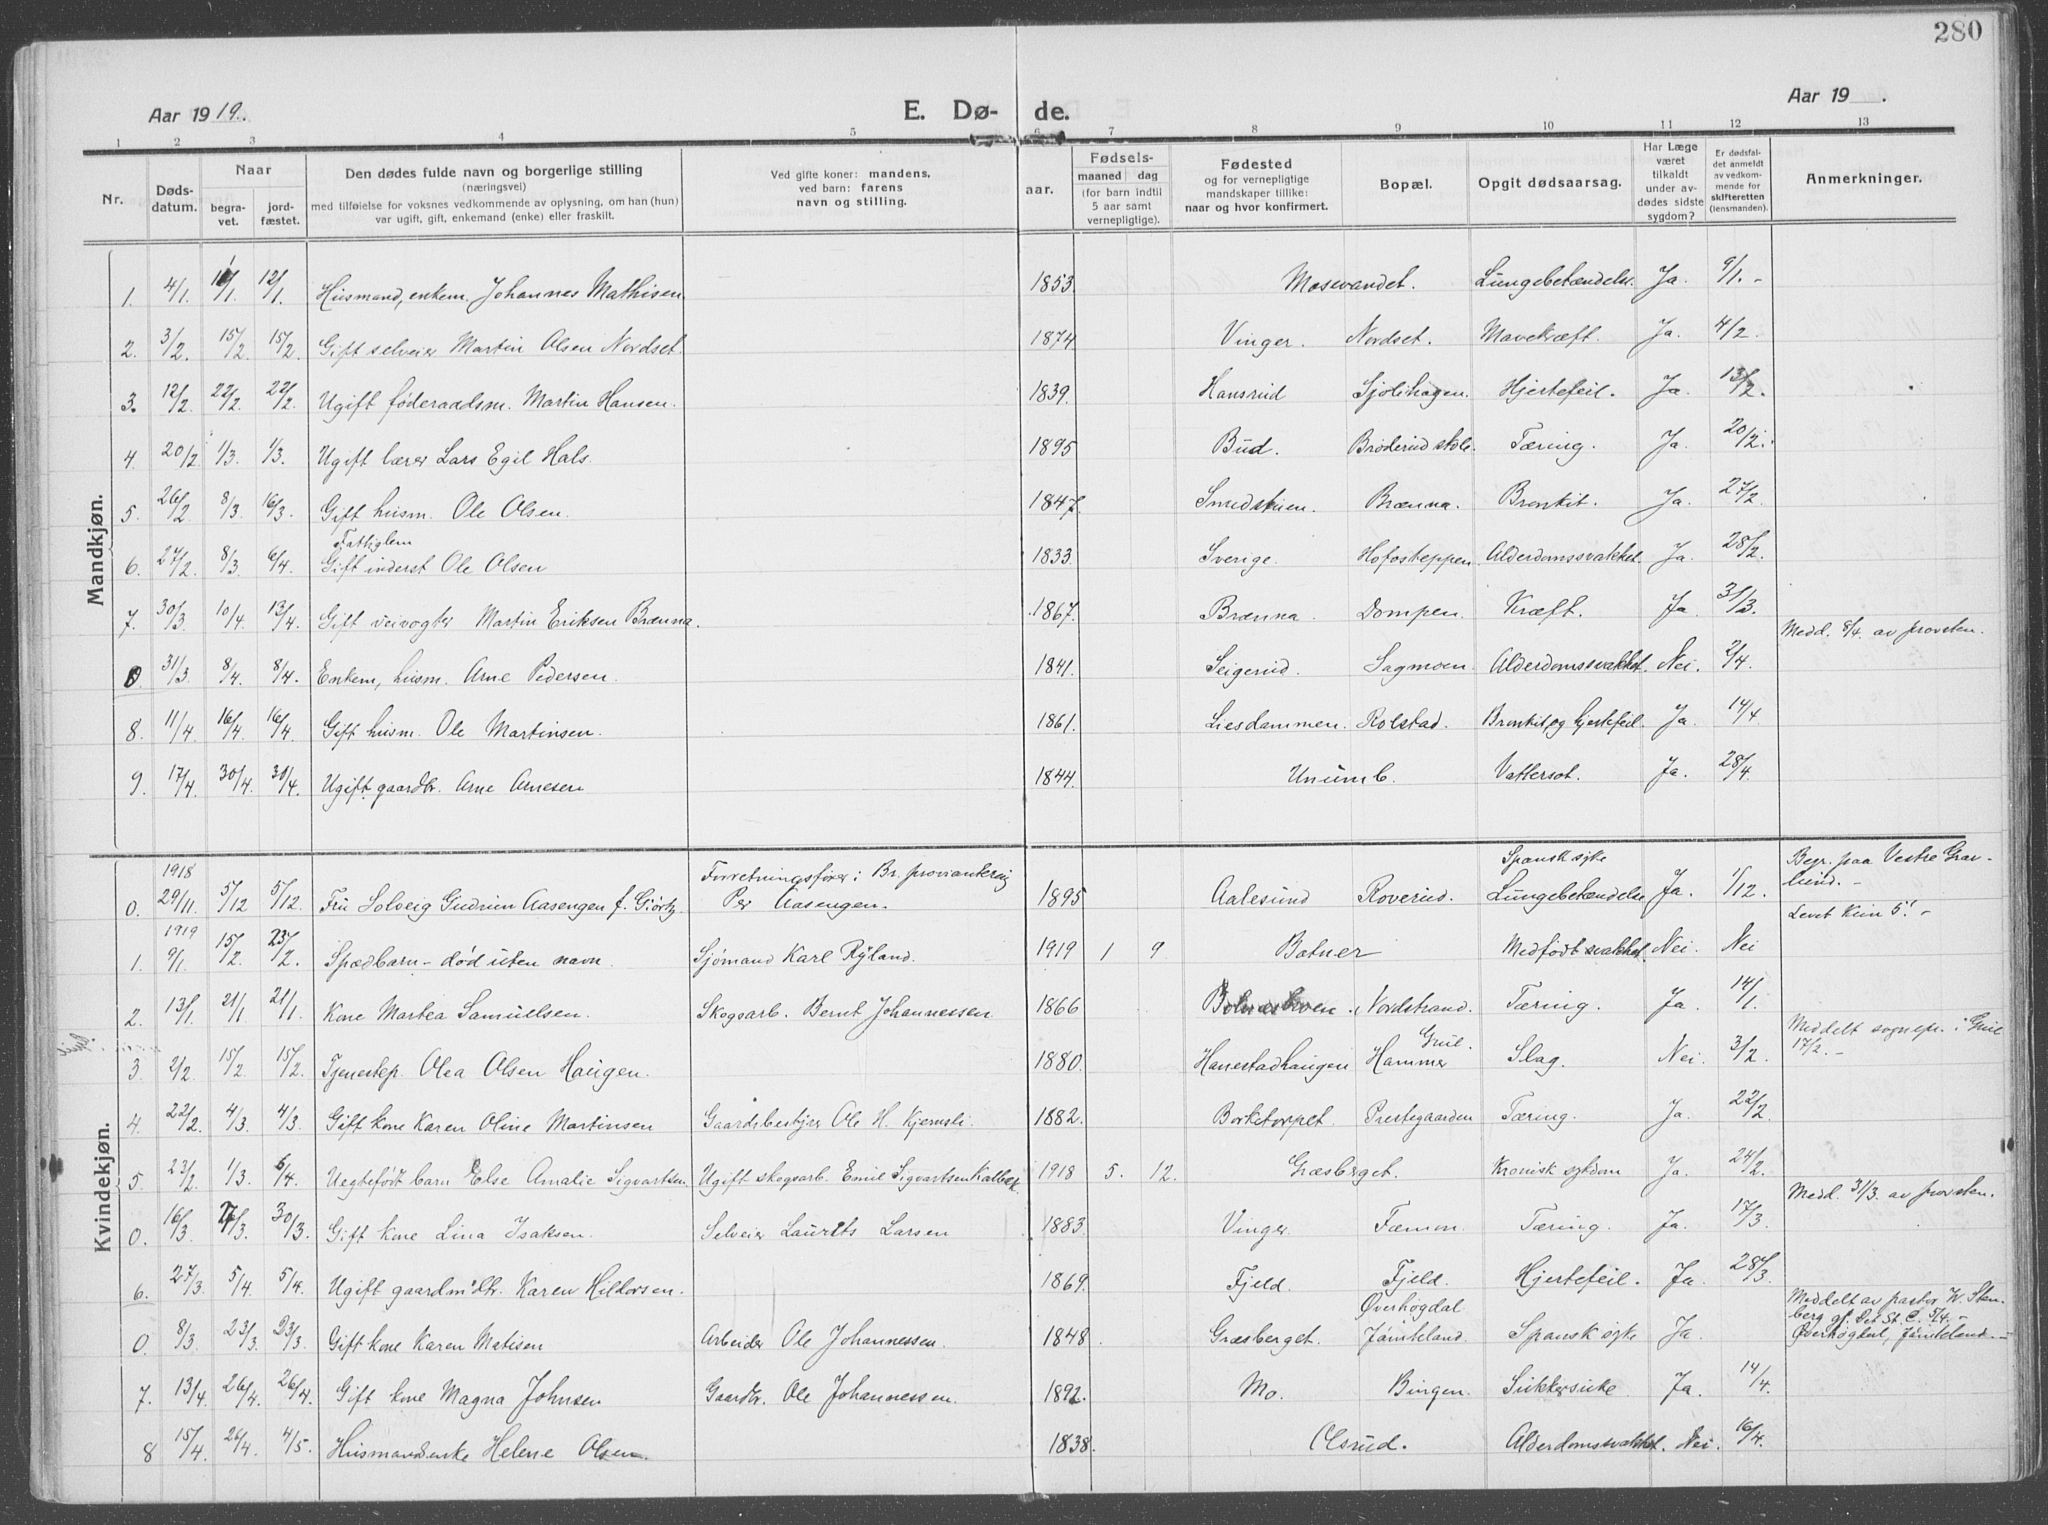 280
Aar 1919. E. Dø- de. Aar 19 .
1 2 3 4 5 6 7 8 9 10 11 12 13
Nr. Døds-datum. Naar begra-vet. jord-fæstet. Den dødes fulde navn og borgerlige stilling (næringsvei) med tilføielse for voksnes vedkommende av oplysning, om han (hun) var ugift, gift, enkemand (enke) eller fraskilt. Ved gifte koner: mandens, ved barn: farens navn og stilling. aar. Fødsels- maaned dag (for barn indtil 5 aar samt vernepligtige). Fødested og for vernepligtige mandskaper tillike: naar og hvor konfirmert. Bopæl. Opgit dødsaarsag. Har Læge været tilkaldt under av-dødes sidste sygdom? Er dødsfal-det anmeldt av vedkom-mende for skifteretten (lensmanden). Anmerkninger.
Mandkjøn.
1. 4/1. 11/1. 12/1. Husmand, enkem. Johannes Mathisen. 1853. Mosevandet. Lungebetændelse. Ja. 9/1. -
2. 3/2. 15/2. 15/2. Gift selveier Martin Olsen Nordset. 1874 Vinger. Nordset. Mavekræft. Ja. 4/2.
3. 12/2. 22/2. 22/2. Ugift føderaadsm. Martin Hansen. 1839. Hansrud Sjølihagen. Hjertefeil. Ja. 13/2.
4. 20/2 1/3. 1/3. Ugift lærer Lars Egil Hals. 1895 Bud. Brøderud skole. Tæring. Ja. 20/2.
5. 26/2 8/3. 16/3. Gift husm. Ole Olsen. 1847. Smedstuen. Brænna. Bronkit. Ja. 27/2.
Fattiglem
6. 27/2. 8/3. 6/4. Gift inderst Ole Olsen 1833. Sverige. Hofosheppen. Alderdomssvakhet. Ja. 28/2.
7. 30/3 10/4. 13/4. Gift veivogter Martin Eriksen Brænna. 1867. Brænna. Dompen. Kræft. Ja. 31/3.
Medd. 8/4. av provsten.
0. 31/3. 8/4. 8/4. Enkem, husm. Arne Pedersen. 1841. Seigerud. Sagmoen. Alderdomssvakhet. Nei. 2/4.
8. 11/4 16/4. 16/4. Gift husm. Ole Martinsen. 1861. Liesdammen. Rolstad. Bronkit, og hjertefeil. Ja. 14/4
9. 17/4. 30/4. 30/4. Ugift gaardbr. Arne Arnesen 1844. Unumb. Vattersot. Ja. 28/4.
Kvindekjøn.
1918 Forretningsfører i Br. proviantering Spansk syke Begr. paa Vestre Grav-
0. 29/11. 5/12 5/12. Fru Solveig Gudrun Aasengen f. Giørtz Per Aasengen. 1895 Aalesund Roverud. Lungebetændelse Ja. 1/12. lund. -
1919 Levet kun 5'. -
1. 9/1. 15/2. 23/2. Spædbarn - død uten navn. Sjømand Karl Ryland. 1919 1 9. Batner Medfødt svakhet. Nei. Nei
2. 13/1. 21/1 21/1. Kone Martea Samuelsen. Skogsarb. Bernt Johannessen. 1866 Nordstrand. Tæring. Ja. 14/1.
Grue. Meddelt sognepr. i Grue
3 2/2. 15/2. 15/2. Tjenestep. Olea Olsen Haugen. 1880. Hanestadhaugen Hammer Slag. Nei. 3/2. 17/2. -
4. 22/2. 4/3. 4/3. Gift kone Karen Oline Martinsen Gaardsbestyrer Ole H. Kjemsli. 1882. Borketorpet. Prestegaarden Tæring. Ja. 22/2
5. 23/2. 1/3. 6/4. Uegtefødt barn Else Amalie Sigvartsen. Ugift skogsarb. Emil Sigvartsen Kalbæk. 1918 5. 12. Græsberget. Kronisk sykdom Ja. 24/2.
Medd. 31/3. av provsten.
0. 16/3. 26/3. 30/3. Gift kone Lina Isaksen. Selveier Laurits Larsen 1883. Vinger. Fæmon. Tæring. Ja. 17/3.
6. 27/3. 5/4. 5/4. Ugift gaardm.dtr. Karen Hildorsen. 1869. Fjeld. Fjeld. Hjertefeil. Ja. 28/3.
Øverhøgdal Meddelt av pastor W. Sten-
0. 8/3. 23/3. 23/3. Gift kone Karen Matisen Arbeider Ole Johannessen. 1848. Græsberget. Jämteland. Spansk syke Ja. berg gj. Det St. C. 5/4. -
Øverhögdal, Jämteland. -
7. 13/4. 26/4. 26/4. Gift kone Magna Johnsen Gaardbr. Ole Johannessen. 1892. Mo. Bingen. Sukkersyke. Ja. 14/4.
8 15/4. 26/4. 4/5. Husmandsenke Helene Olsen. 1838. Olsrud. Alderdomssvakhet. Nei. 16/4.